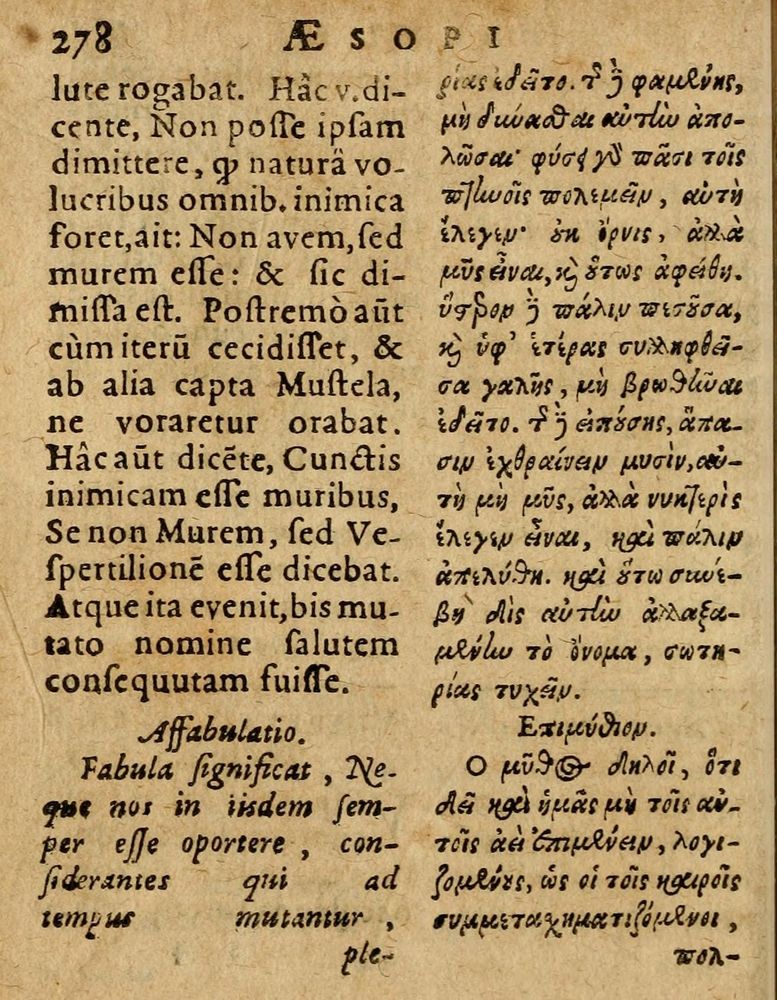 278 ÆSOPI
lute rogabat. Hâc v. di-
cente, Non poſſe ipſam
dimittere, ꝙ naturā vo-
lucribus omnib. inimica
foret, ait: Non avem, ſed
murem eſſe: & ſic di-
miſſa eſt. Poſtremò aūt
cùm iterū cecidiſſet, &
ab alia capta Muſtela,
ne voraretur orabat.
Hâc aūt dicēte, Cunctis
inimicam eſſe muribus,
Se non Murem, ſed Ve-
ſpertilionē eſſe dicebat.
Atque ita evenit, bis mu-
tato nomine ſalutem
conſequutam fuiſſe.
Affabulatio.
Fabula ſignificat, Ne-
que nos in iisdem ſem-
per eſſe oportere, con-
ſiderantes qui ad
tempus mutantur,
ple-
ρίας ἐδεῖτο. τῆς δὲ φαμένης,
μὴ δύνασθαι αὐτὴν ἀπο-
λῦσαι· φύσει γὰρ πᾶσι τοῖς
πτηνοῖς πολεμεῖν, αὐτὴ
ἔλεγεν· οὐκ ὄρνις, ἀλλὰ
μῦς εἶναι, καὶ οὕτως ἀφείθη.
ὕστερον δὲ πάλιν πεσοῦσα,
καὶ ὑφ' ἑτέρας συλληφθεῖ-
σα γαλῆς, μὴ βρωθῆναι
ἐδεῖτο. τῆς δὲ εἰπούσης, ἅπα-
σιν ἐχθραίνειν μυσὶν, αὐ-
τὴ μὴ μῦς, ἀλλὰ νυκτερὶς
ἔλεγεν εἶναι, καὶ πάλιν
ἀπελύθη. καὶ οὕτω συνέ-
βη δὶς αὐτὴν ἀλλαξα-
μένην τὸ ὄνομα, σωτη-
ρίας τυχεῖν.
Επιμύθιον.
Ο μῦθος δηλοῖ, ὅτι
δεῖ καὶ ἡμᾶς μὴ τοῖς αὐ-
τοῖς ἀεὶ ἐπιμένειν, λογι-
ζομένους, ὡς οἱ τοῖς καιροῖς
συμμετασχηματιζόμενοι,
πολ-